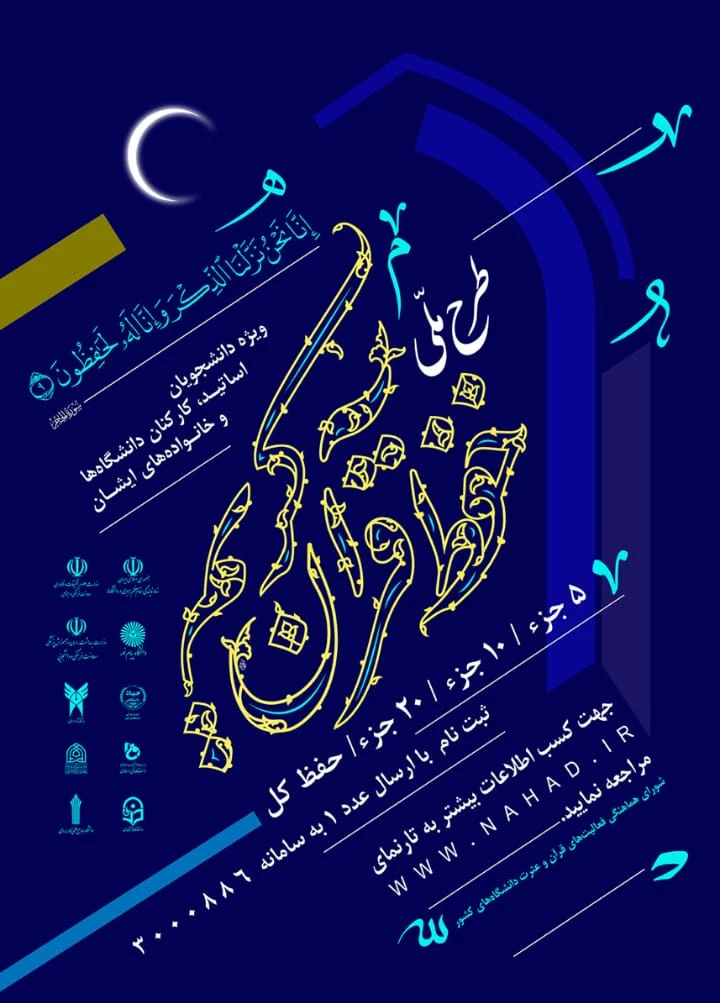 إِنَّا نَحْنُ نَزَّلْنَا ٱلذِّكْرَ وَإِنَّا لَهُۥ لَحَـٰفِظُونَ ۹
طرح ملّی
حفظ قرآن کریم
ویژه دانشجویان
اساتید، کارکنان دانشگاه‌ها
و خانواده‌های ایشان
۵ جزء / ۱۰ جزء / ۲۰ جزء / حفظ کل
ثبت نام با ارسال عدد ۱ به سامانه ۳۰۰۰۰۸۸۶
جهت کسب اطلاعات بیشتر به تارنمای
WWW.NAHAD.IR
مراجعه نمایید.
شورای هماهنگی فعالیت‌های قرآن و عترت دانشگاه‌های کشور